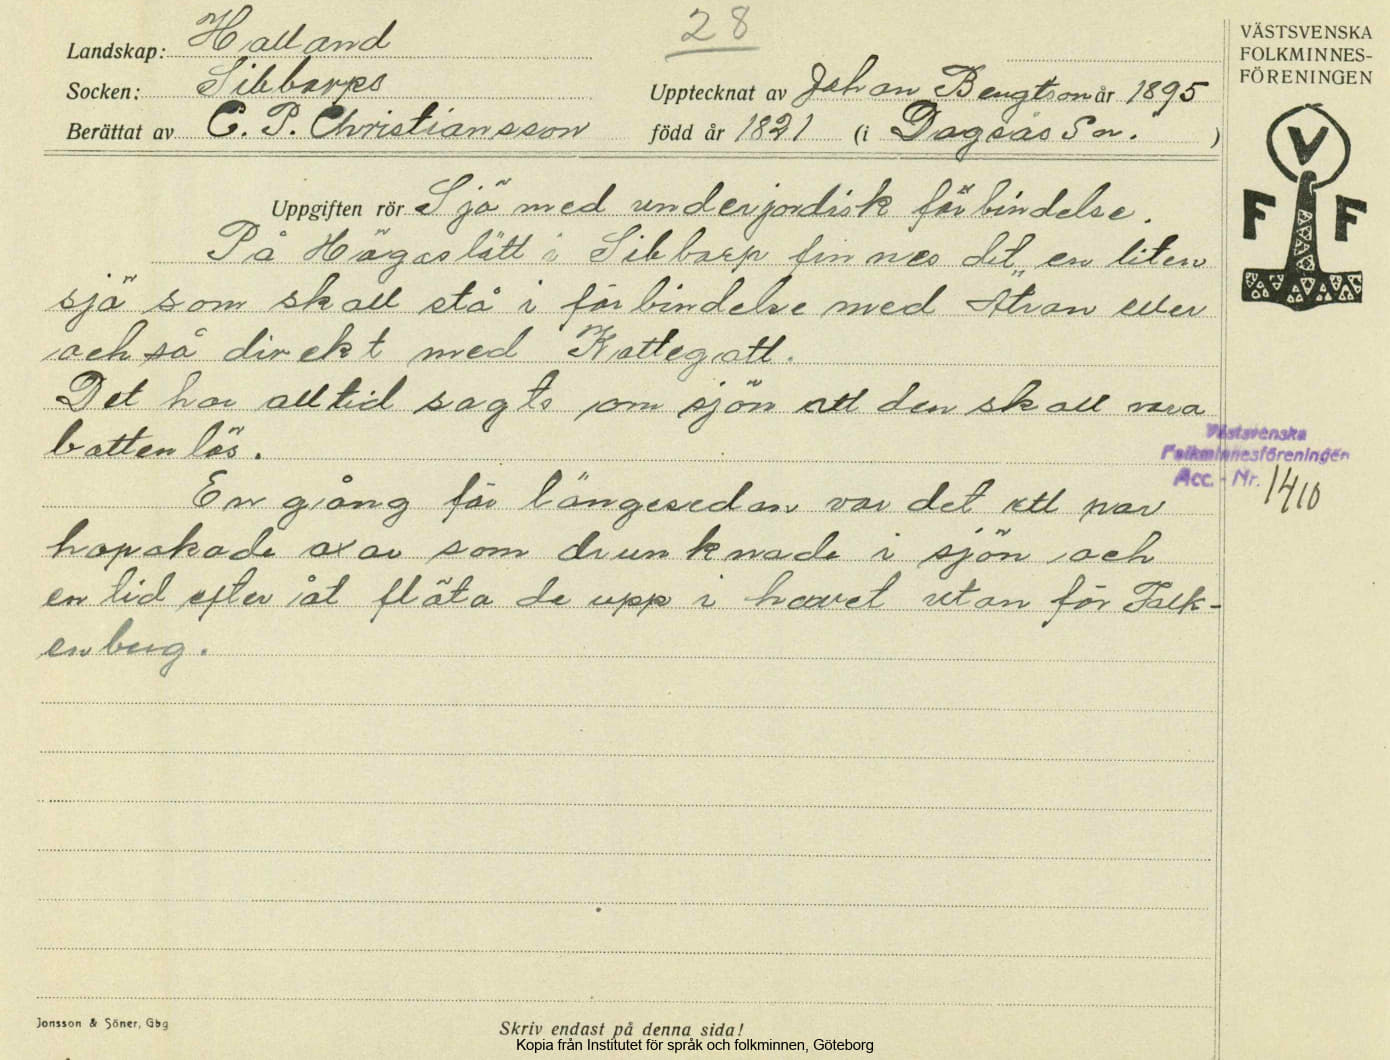 28
Landskap: Halland
Socken: Sibbarps
Upptecknat av Johan Bengtson år 1895
Berättat av C. P. Christiansson
född år 1821 (i Dagsås Sn. )
VÄSTSVENSKA
FOLKMINNES-
FÖRENINGEN
V
F F
Uppgiften rör Sjö med underjordisk förbindelse.
På Högaslätt i Sibbarp finnes det en liten
sjö som skall stå i förbindelse med Ätran eller
och så direkt med Kattegatt.
Det har alltid sagts om sjön att den skall vara
bottenlös.
Västsvenska
Folkminnesföreningen
Acc. - Nr. 1410
En gång för längesedan var det ett par
hopokade oxar som drunknade i sjön och
en tid efter åt flöto de upp i havet utan för Falk-
enberg.
Jonsson & Söner, Gbg
Skriv endast på denna sida!
Kopia från Institutet för språk och folkminnen, Göteborg